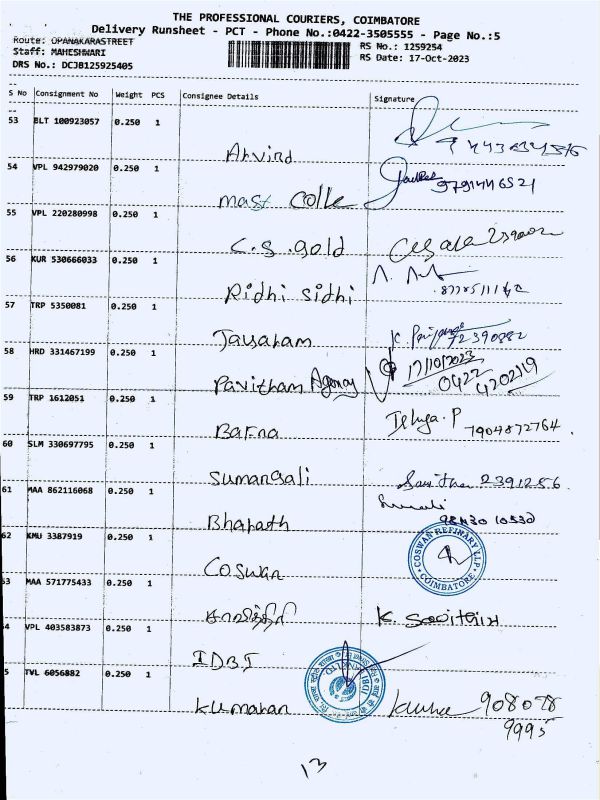 THE PROFESSIONAL COURIERS, COIMBATORE
Delivery Runsheet - PCT - Phone No.:0422-3505555 - Page No.:5
Route: OPANAKARASTREET
RS No.: 1259254
Staff: MAHESHWARI
RS Date: 17-Oct-2023
DRS No.: DCJB125925405
S No Consignment No Weight PCS Consignee Details Signature
53 BLT 100923057 0.250 1
Arvind
54 VPL 942979020 0.250 1
9791446521
mast colle
55 VPL 220280998 0.250 1
C.S.gold
56 KUR 530666033 0.250 1
Ridhi sidhi
57 TRP 5350081 0.250 1
Jayaram
58 HRD 331467199 0.250 1
17/10/2023
Pavitham Agency
0422
4202119
59 TRP 1612051 0.250 1
Bafna
7904872764
60 SLM 330697795 0.250 1
Sumangali
2391256
61 MAA 862116068 0.250 1
Bharath
98430 10530
62 KMU 3387919 0.250 1
COSWAN REFINARY LLP
COIMBATORE
Coswan
53 MAA 571775433 0.250 1
சாவித்திரி
K.
54 VPL 403583873 0.250 1
IDBI
55 TVL 6056882 0.250 1
Kumaran
908078
9995
13